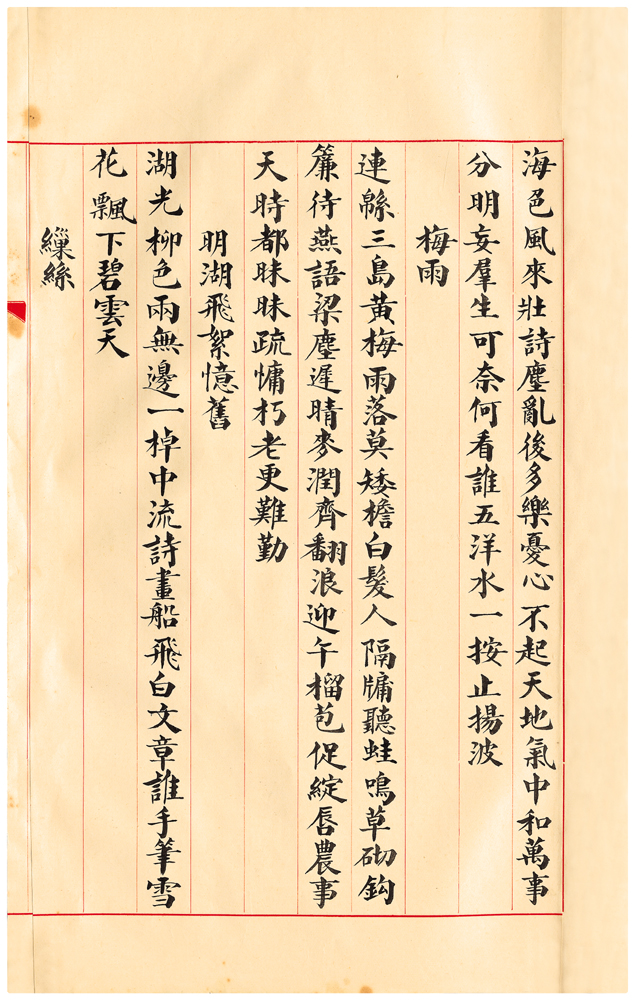 海色風來壯詩塵亂後多樂憂心不起天地氣中和萬事
分明妄羣生可奈何看誰五洋水一按止揚波
梅雨
連緜三島黃梅雨落莫矮檐白髮人隔牖聽蛙鳴草砌鈎
簾待燕語梁塵遲晴麥潤齊翻浪迎午榴苞促綻唇農事
天時都昧昧疏慵朽老更難勤
明湖飛絮憶舊
湖光柳色雨無邊一棹中流詩畫船飛白文章誰手筆雪
花飄下碧雲天
繅絲